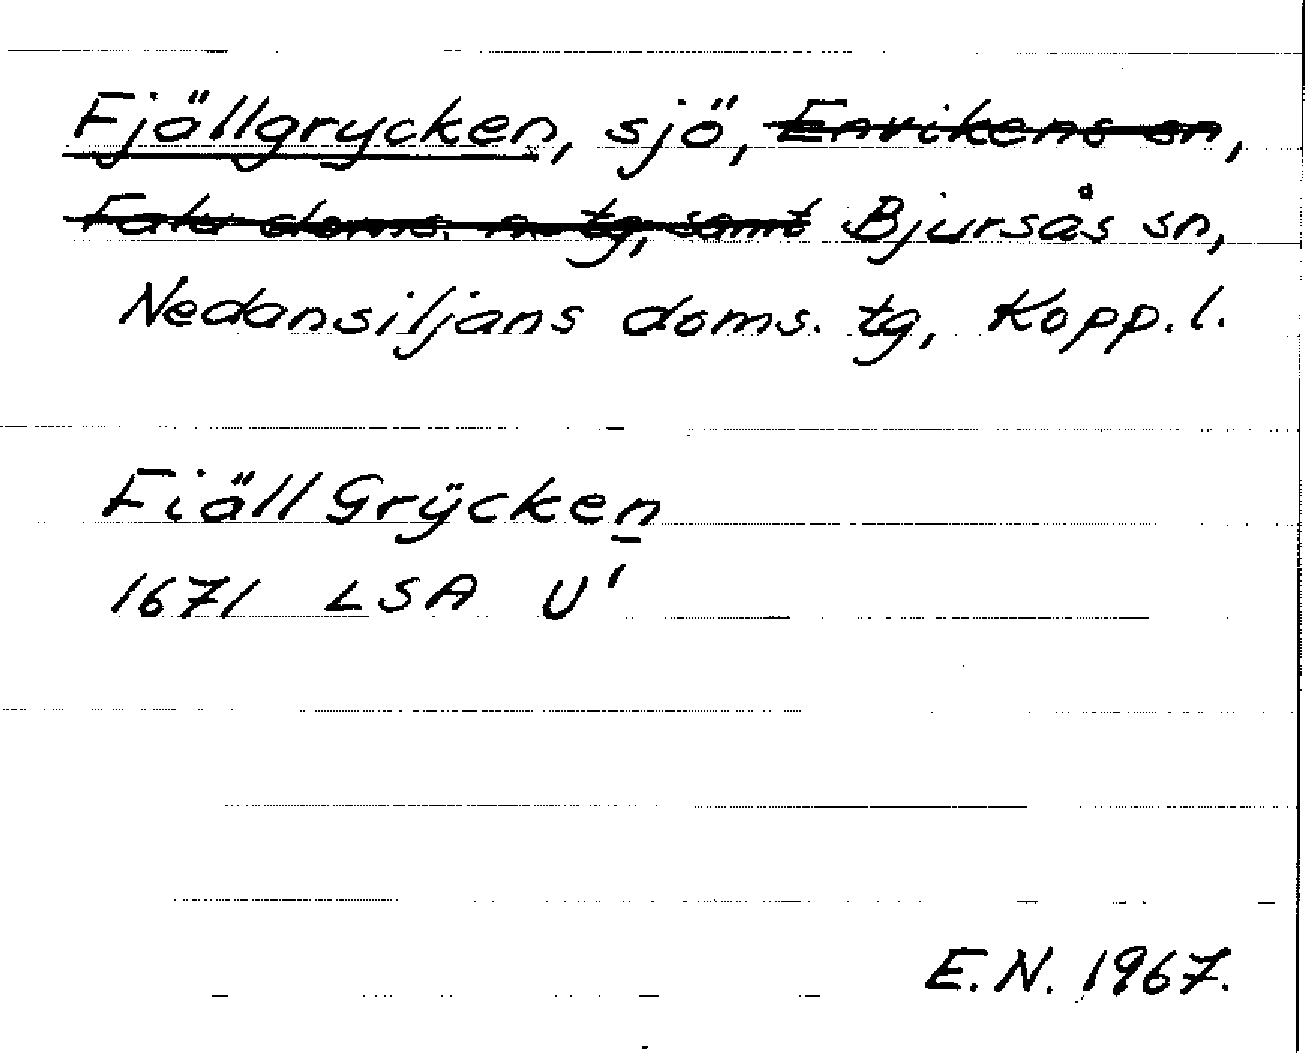 Fjällgrycken, sjö, Envikens sn,
Falu doms. n. tg, samt Bjursås sn,
Nedansiljans doms. tg, Kopp. l.
Fiäll Grÿcken
1671 LSA U'
E.N. 1967.